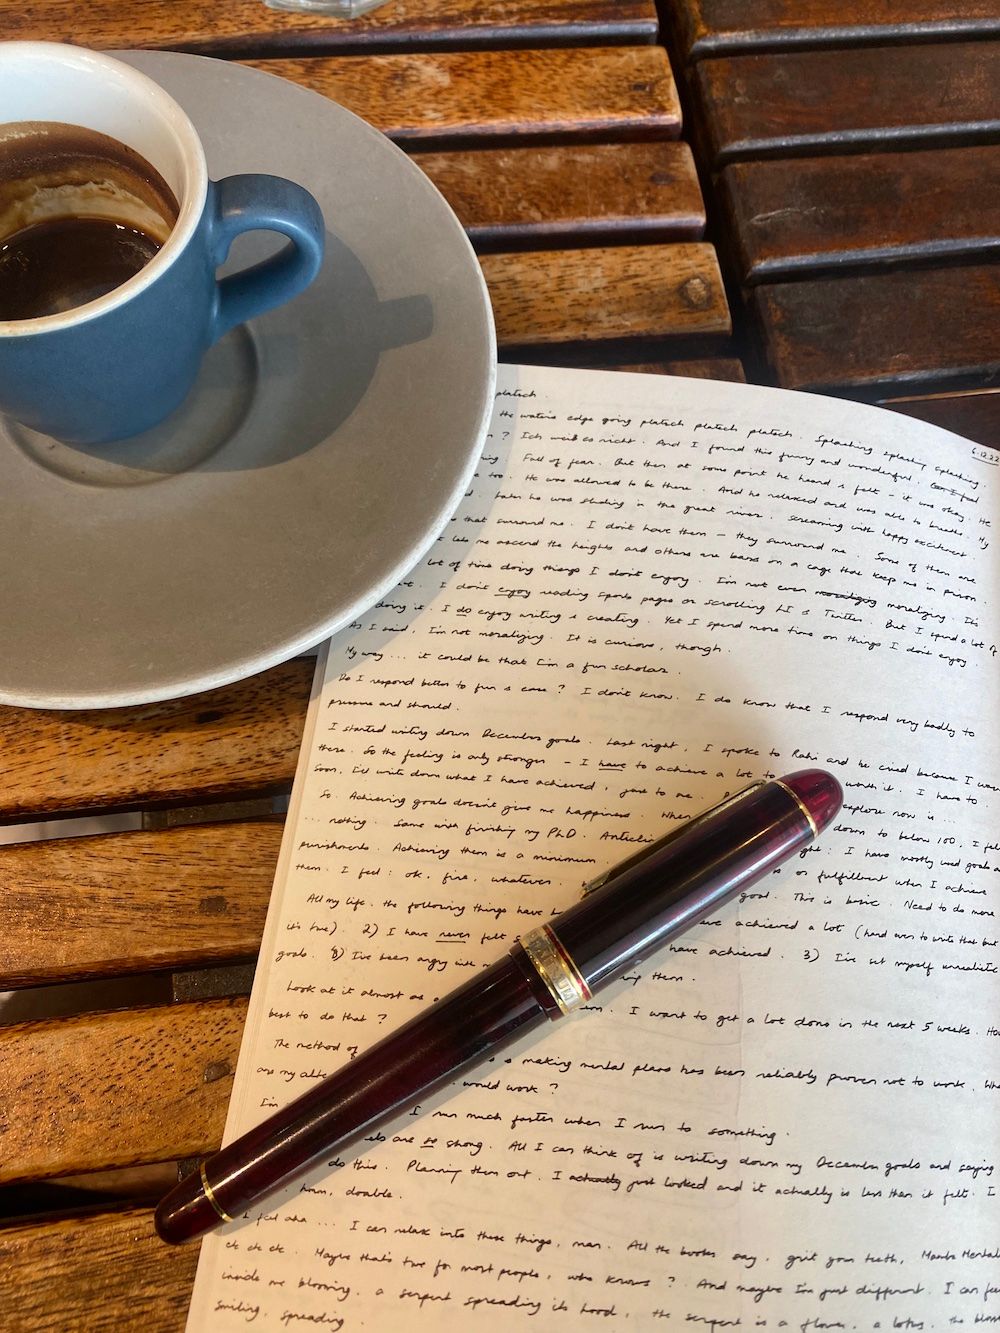 platsch.
the water's edge going platsch platsch platsch. Splashing splashing splashing
6.12.22
? Ich weiß es nicht. And I found this funny and wonderful.
Full of fear. But then at some point he heard & felt - it was okay. He
too. He was allowed to be there. And he relaxed and was able to breathe. My
Later he was sliding in the great river. Screaming with happy excitement
that surround me. I don't have them - they surround me. Some of them are
lets me ascend the heights and others are bars on a cage that keep me in prison.
lot of time doing things I don't enjoy. I'm not even moralizing moralizing. It's
I don't enjoy reading sports pages or scrolling LI & Twitter. But I spend a lot of
doing it. I do enjoy writing & creating. Yet I spend more time on things I don't enjoy.
As I said, I'm not moralizing. It is curious, though.
My way... it could be that I'm a fun scholar.
Do I respond better to fun & ease? I don't know. I do know that I respond very badly to
pressure and should.
I started writing down December goals. Last night, I spoke to Rahi and he cried because I was
there. So the feeling is only stronger - I have to achieve a lot to worth it. I have to
Soon, I'll write down what I have achieved, just to me. explore now is...
So. Achieving goals doesn't give me happiness. When down to below 100, I fel
... nothing. Same with finishing my PhD. : I have mostly used goals a
punishments. Achieving them is a minimum. or fulfillment when I achieve
them. I feel: ok, fine, whatever. goal. This is basic. Need to do more
All my life, the following things have achieved a lot (hard even to write that but
it's true). 2) I have never felt have achieved. 3) I've set myself unrealistic
goals. I've been angry with them.
Look at it almost as a I want to get a lot done in the next 5 weeks. How
best to do that?
The method of making mental plans has been reliably proven not to work. Wha
are my alte would work?
I'm I run much faster when I run to something.
are so strong. All I can think of is writing down my December goals and saying
do this. Planning them out. I actually just looked and it actually is less than it felt. I
hmm, doable.
I feel aha... I can relax into these things, man. All the books say, grit your teeth,
etc etc etc. Maybe that's true for most people, who knows? And maybe I'm just different. I can fee
inside me blooming, a serpent spreading its hood, the serpent is a flower, a lotus, the
smiling, spreading.